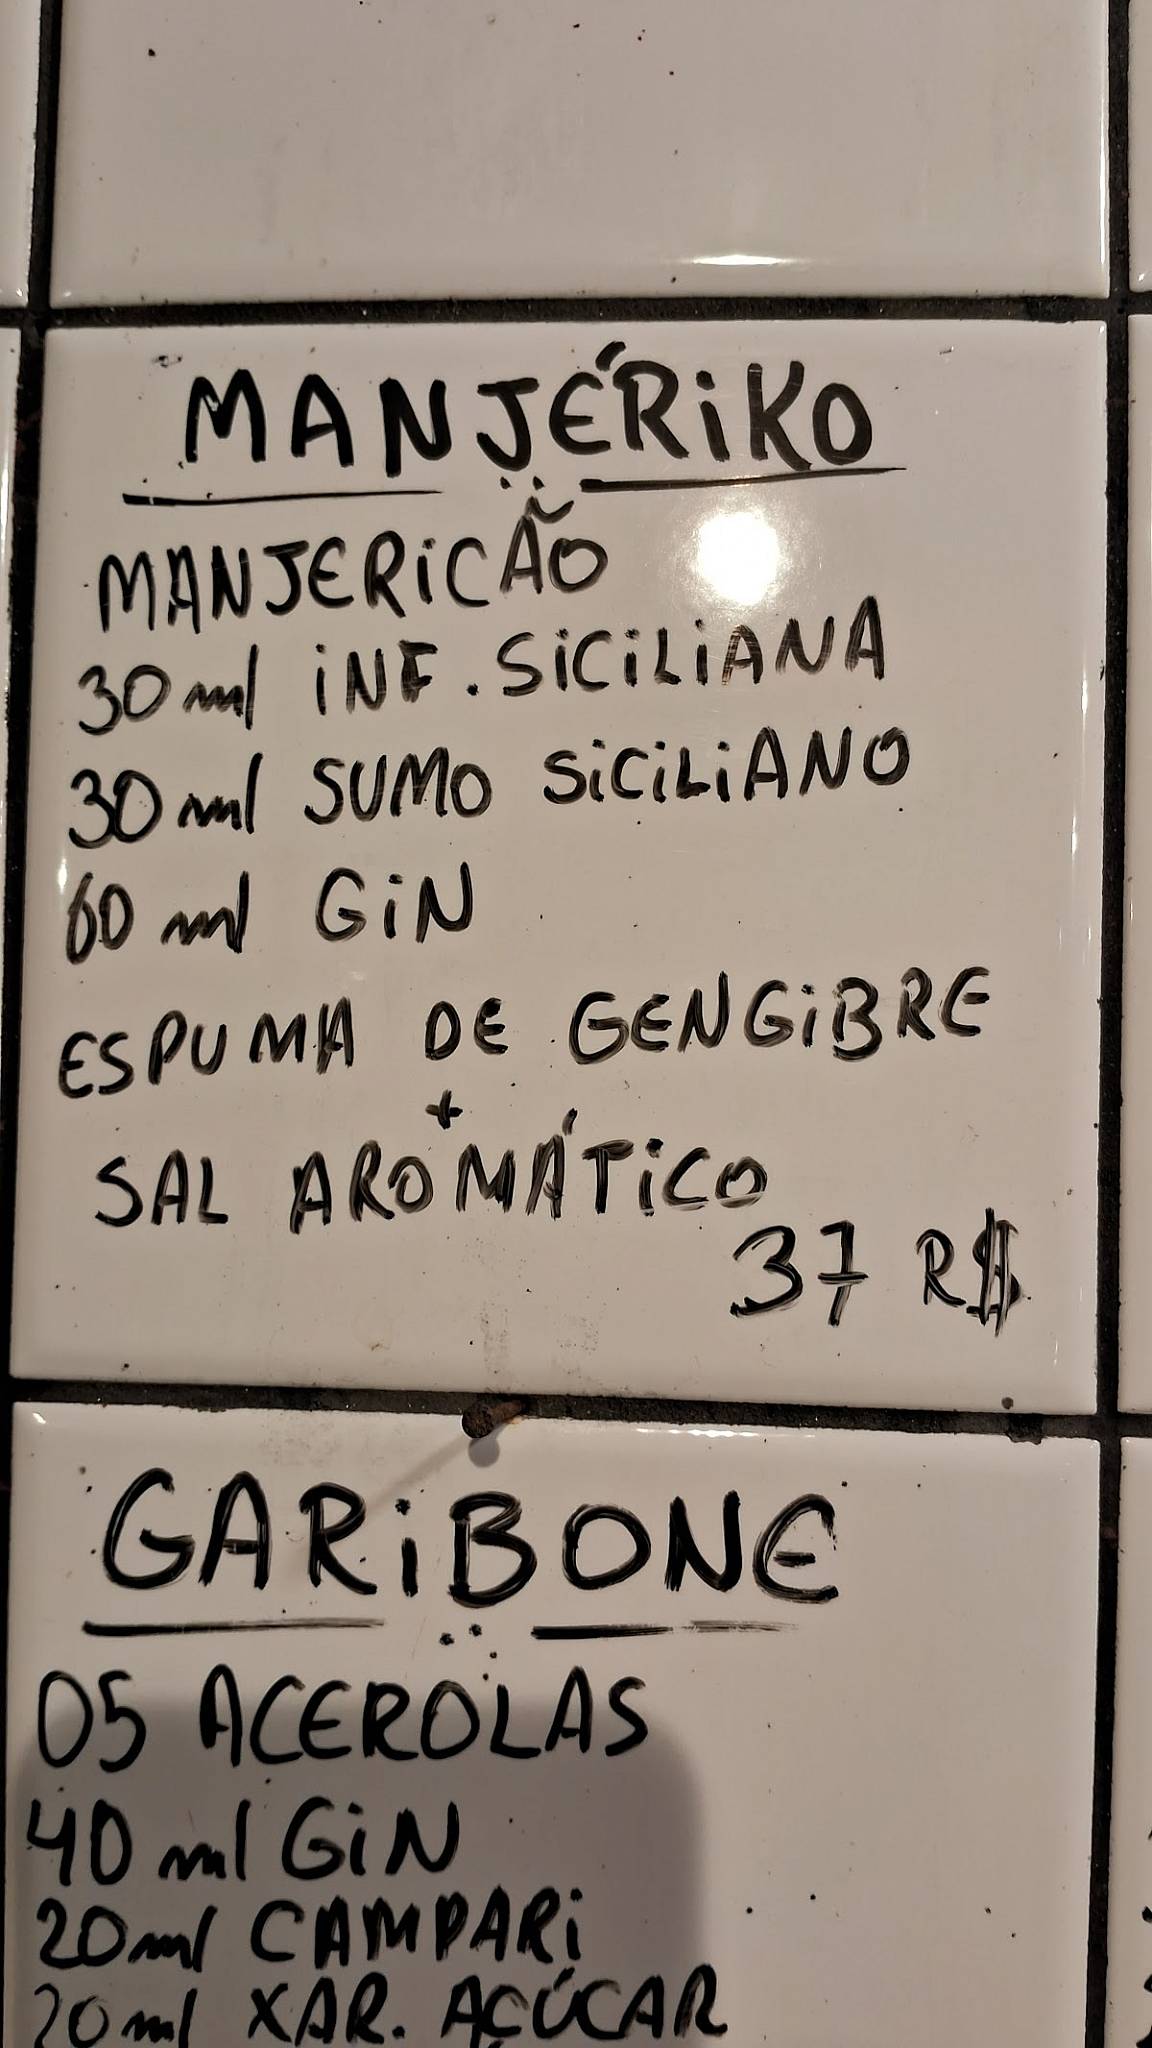 MANJÉRiKO
MANJERiCÃO
30ml iNF. SiCiLiANA
30ml SUMO SiCiLiANO
60ml GiN
ESPUMA DE GENGiBRE
+
SAL AROMÁTiCO
37 R$
GARiBONE
05 ACEROLAS
40ml GiN
20ml CAMPARi
20ml XAR. AÇÚCAR